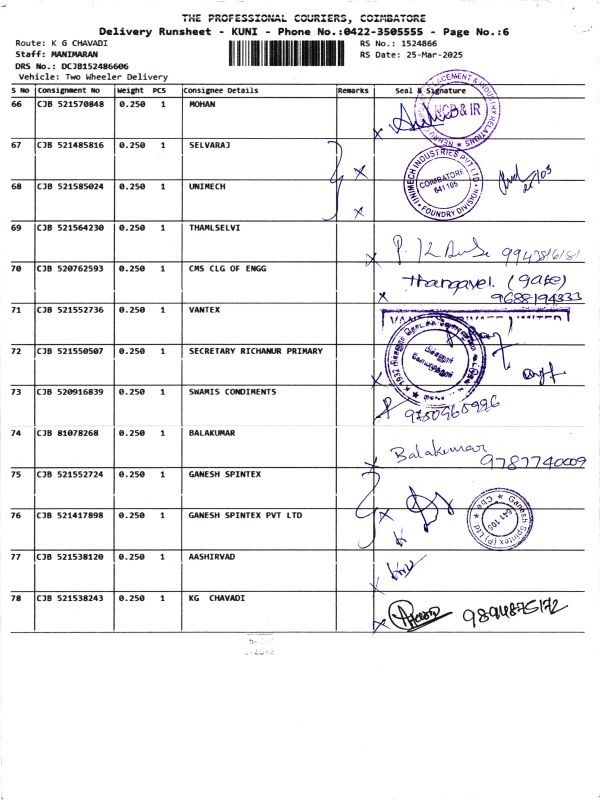 THE PROFESSIONAL COURIERS, COIMBATORE
Delivery Runsheet - KUNI - Phone No.:0422-3505555 - Page No.:6
Route: K G CHAVADI
RS No.: 1524866
Staff: MANIMARAN
RS Date: 25-Mar-2025
DRS No.: DCJB152486606
Vehicle: Two Wheeler Delivery
S No Consignment No Weight PCS Consignee Details Remarks Seal & Signature
66 CJB 521570848 0.250 1 MOHAN
67 CJB 521485816 0.250 1 SELVARAJ
UNIMECH INDUSTRIES PVT LTD
COIMBATORE
641 105
FOUNDRY DIVISION
68 CJB 521585024 0.250 1 UNIMECH
69 CJB 521564230 0.250 1 THAMLSELVI
70 CJB 520762593 0.250 1 CMS CLG OF ENGG
Thangavel. (gate)
9688194333
71 CJB 521552736 0.250 1 VANTEX
72 CJB 521550507 0.250 1 SECRETARY RICHANUR PRIMARY
73 CJB 520916839 0.250 1 SWAMIS CONDIMENTS
74 CJB 81078268 0.250 1 BALAKUMAR
Balakumar
9787740009
75 CJB 521552724 0.250 1 GANESH SPINTEX
76 CJB 521417898 0.250 1 GANESH SPINTEX PVT LTD
Ganesh Spintex (P) Ltd
641 105
Cbe
77 CJB 521538120 0.250 1 AASHIRVAD
78 CJB 521538243 0.250 1 KG CHAVADI
9894875172